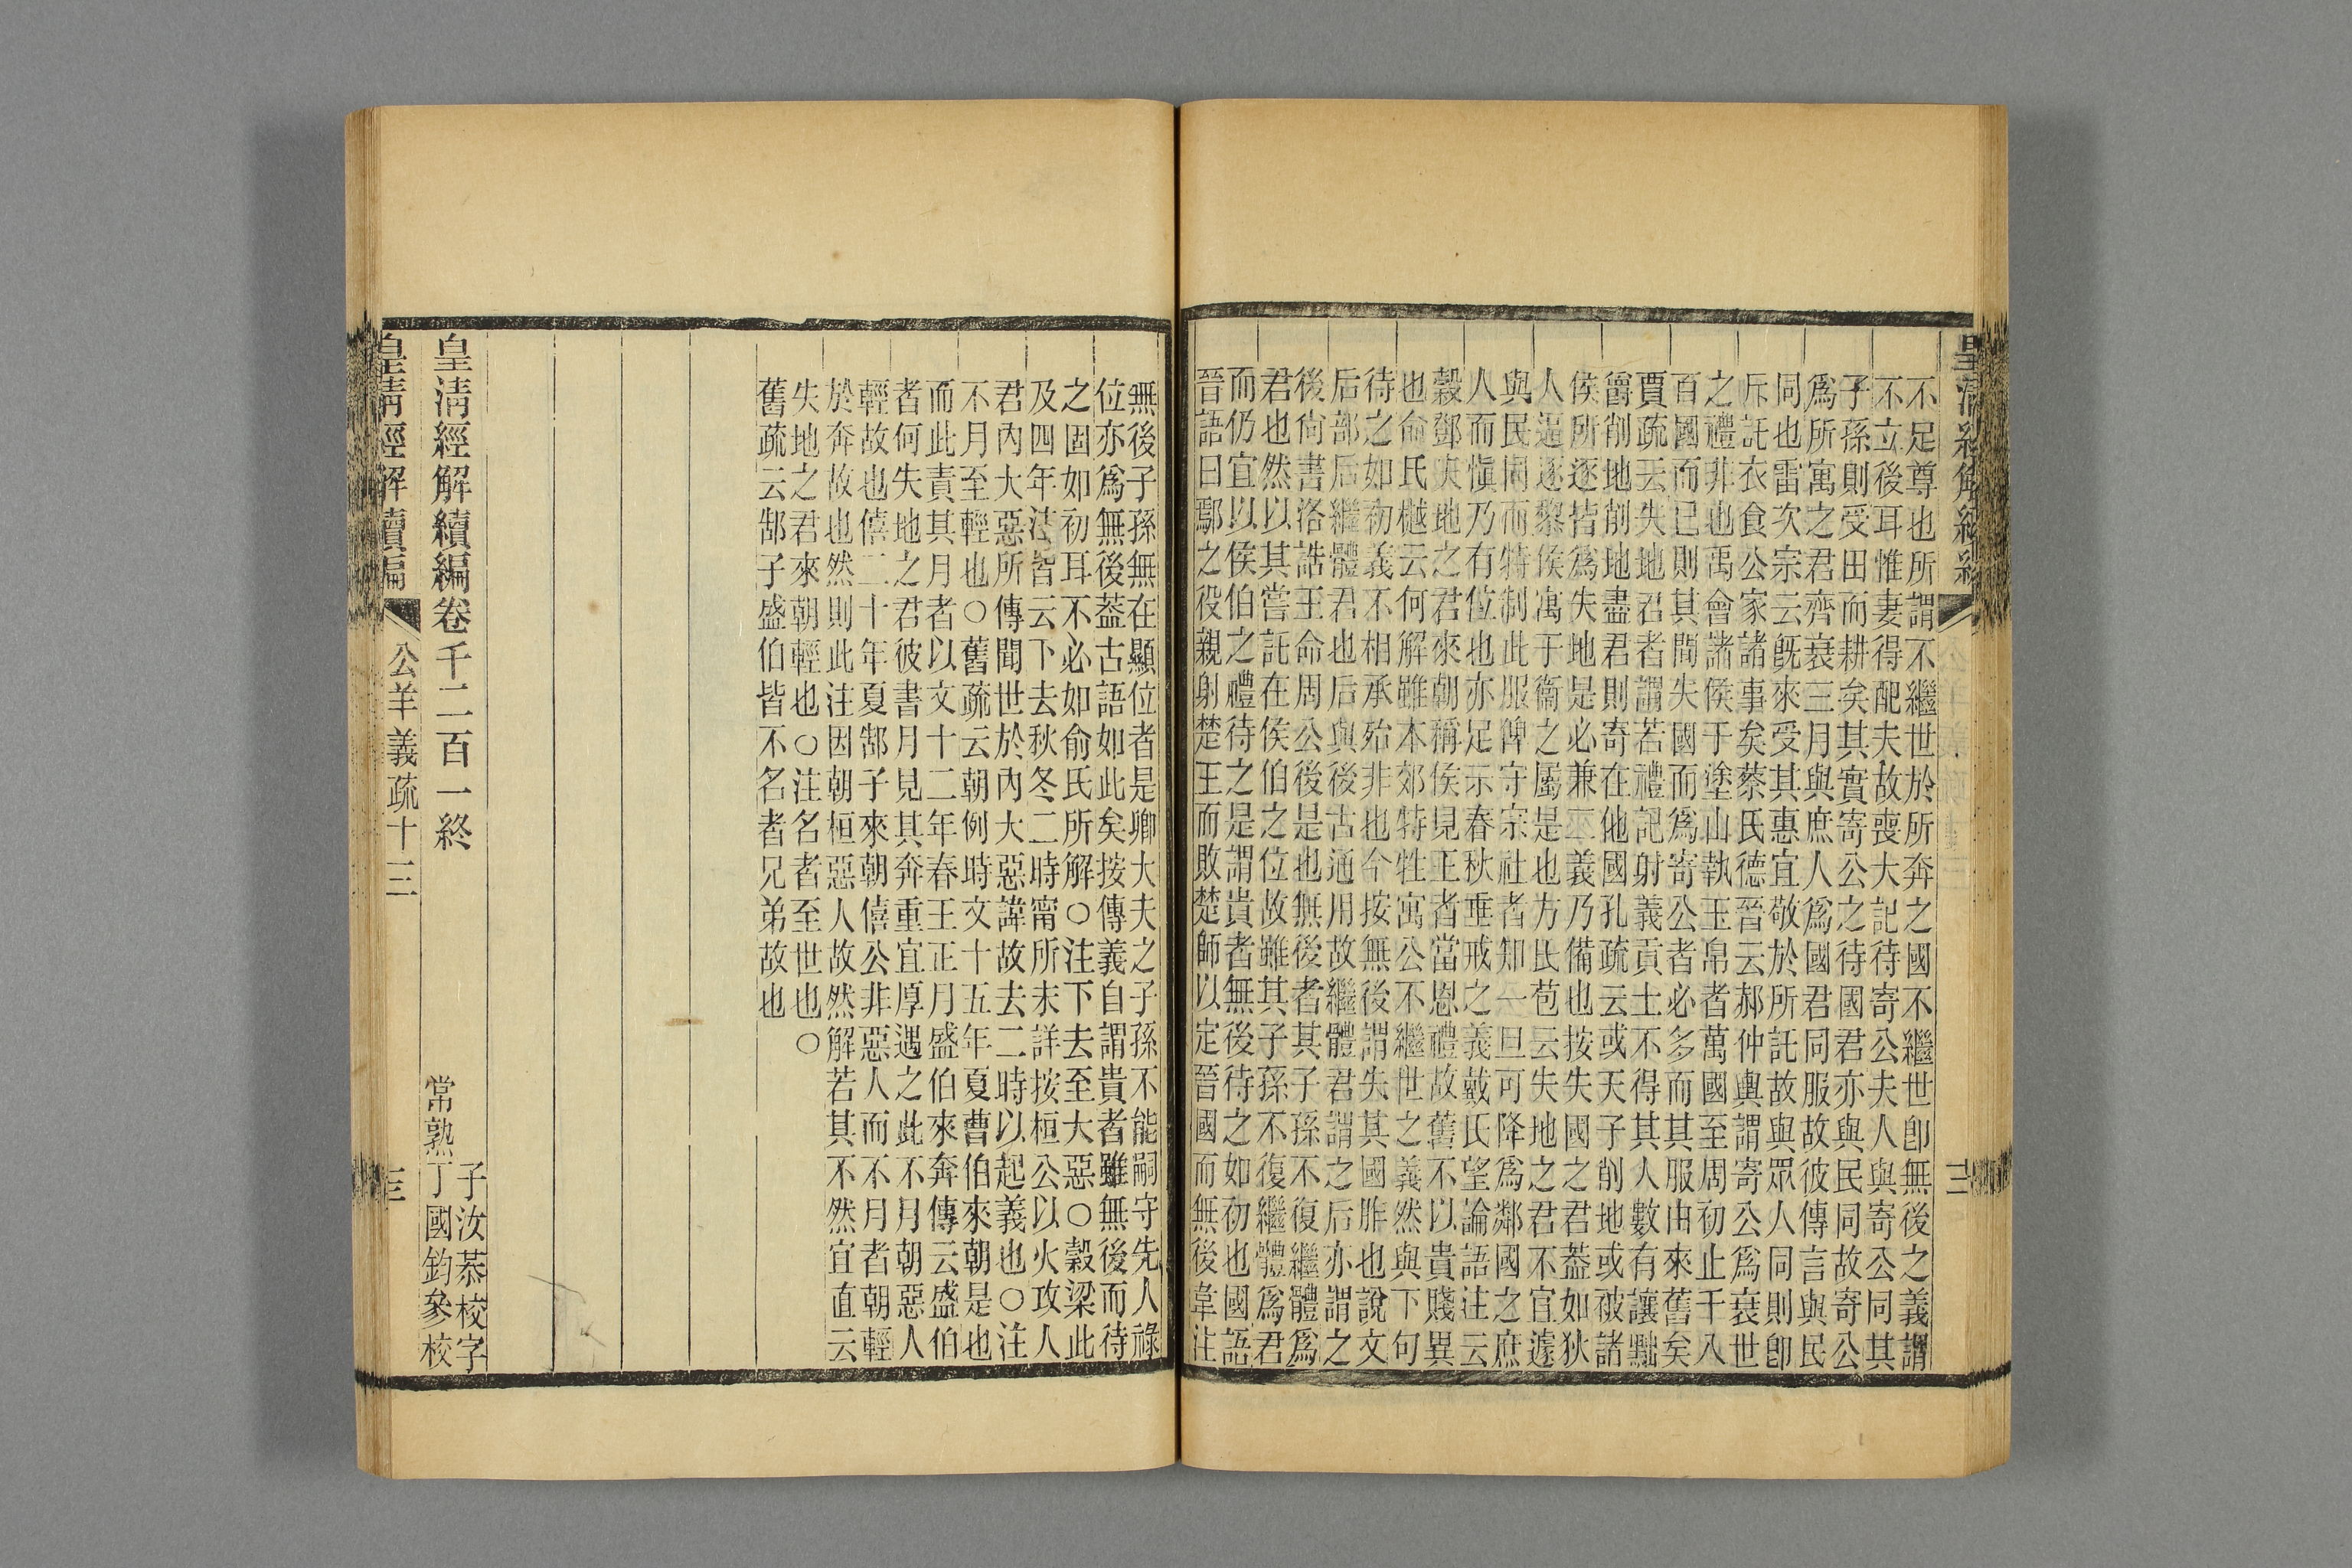 不足尊也所謂不繼世於所奔之國不繼世卽無後之義謂
不立後耳惟妻得配夫故喪大記待寄公夫人與寄公同其
子孫則受田而耕矣其實寄公之待國君亦與民同故寄公
爲所寓之君齊衰三月與庶人爲國君同服故彼傳言與民
同也雷次宗云旣來受其惠宜敬於所託故與眾人同則卽
斥託衣食公家諸事矣蔡氏德晉云郝仲輿謂寄公爲衰世
之禮非也禹會諸侯于塗山執玉帛者萬國至周初止千八
百國而已則其間失國而爲寄公者必多而其服由來舊矣
賈疏云失地君者謂若禮記射義貢士不得其人數有讓黜
爵削地削地盡君則寄在他國孔疏云或天子削地或被諸
侯所逐皆爲失地是必兼二義乃備也按失國之君蓋如狄
人迫逐黎侯寓于衞之屬是也方氏苞云失地之君不宜遽
與民同而特制此服俾守宗社者知一旦可降爲鄰國之庶
人而愼乃有位也亦足示春秋垂戒之義戴氏望論語注云
穀鄧夾地之君來朝稱侯見王者當恩禮故舊不以貴賤異
也俞氏樾云何解雖本郊特牲寓公不繼世之義然與下句
待之如初義不相承殆非也今按無後謂失其國胙也說文
后部后繼體君也后與後古通用故繼體君謂之后亦謂之
後尙書洛誥王命周公後是也無後者其子孫不復繼體爲
君也然以其嘗託在侯伯之位故雖其子孫不復繼體爲君
而仍宜以侯伯之禮待之是謂貴者無後待之如初也國語
晉語曰鄢之役親射楚王而敗楚師以定晉國而無後韋注
無後子孫無在顯位者是卿大夫之子孫不能嗣守先人祿
位亦爲無後蓋古語如此矣按傳義自謂貴者雖無後而待
之固如初耳不必如俞氏所解○注下去至大惡○穀梁此
及四年注皆云下去秋冬二時甯所未詳按桓公以火攻人
君內大惡所傳聞世於內大惡諱故去二時以起義也○注
不月至輕也○舊疏云朝例時文十五年夏曹伯來朝是也
而此責其月者以文十二年春王正月盛伯來奔傳云盛伯
者何失地之君彼書月見其奔重宜厚遇之此不月朝惡人
輕故也僖二十年夏郜子來朝僖公非惡人而不月者朝輕
於奔故也然則此注因朝桓惡人故然解若其不然宜直云
失地之君來朝輕也○注名者至世也○
舊疏云郜子盛伯皆不名者兄弟故也
皇淸經解續編卷千二百一終
子汝恭校字
常熟丁國鈞參校
皇淸經解續編
公羊義疏十三